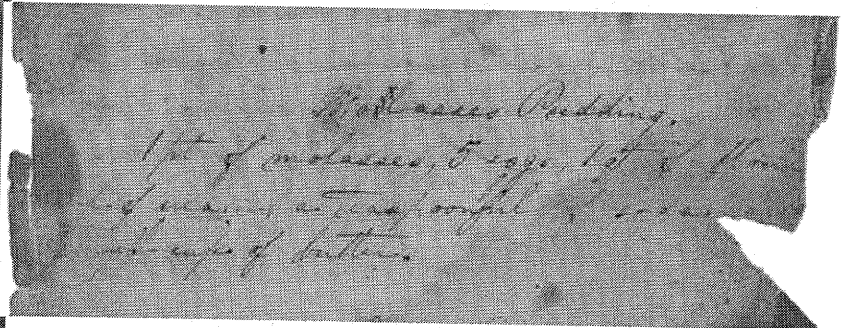 Molasses Pudding.
1 pt of molasses, 5 eggs, 1 qt of flour
of cream, a teaspoonful of
cup of butter.